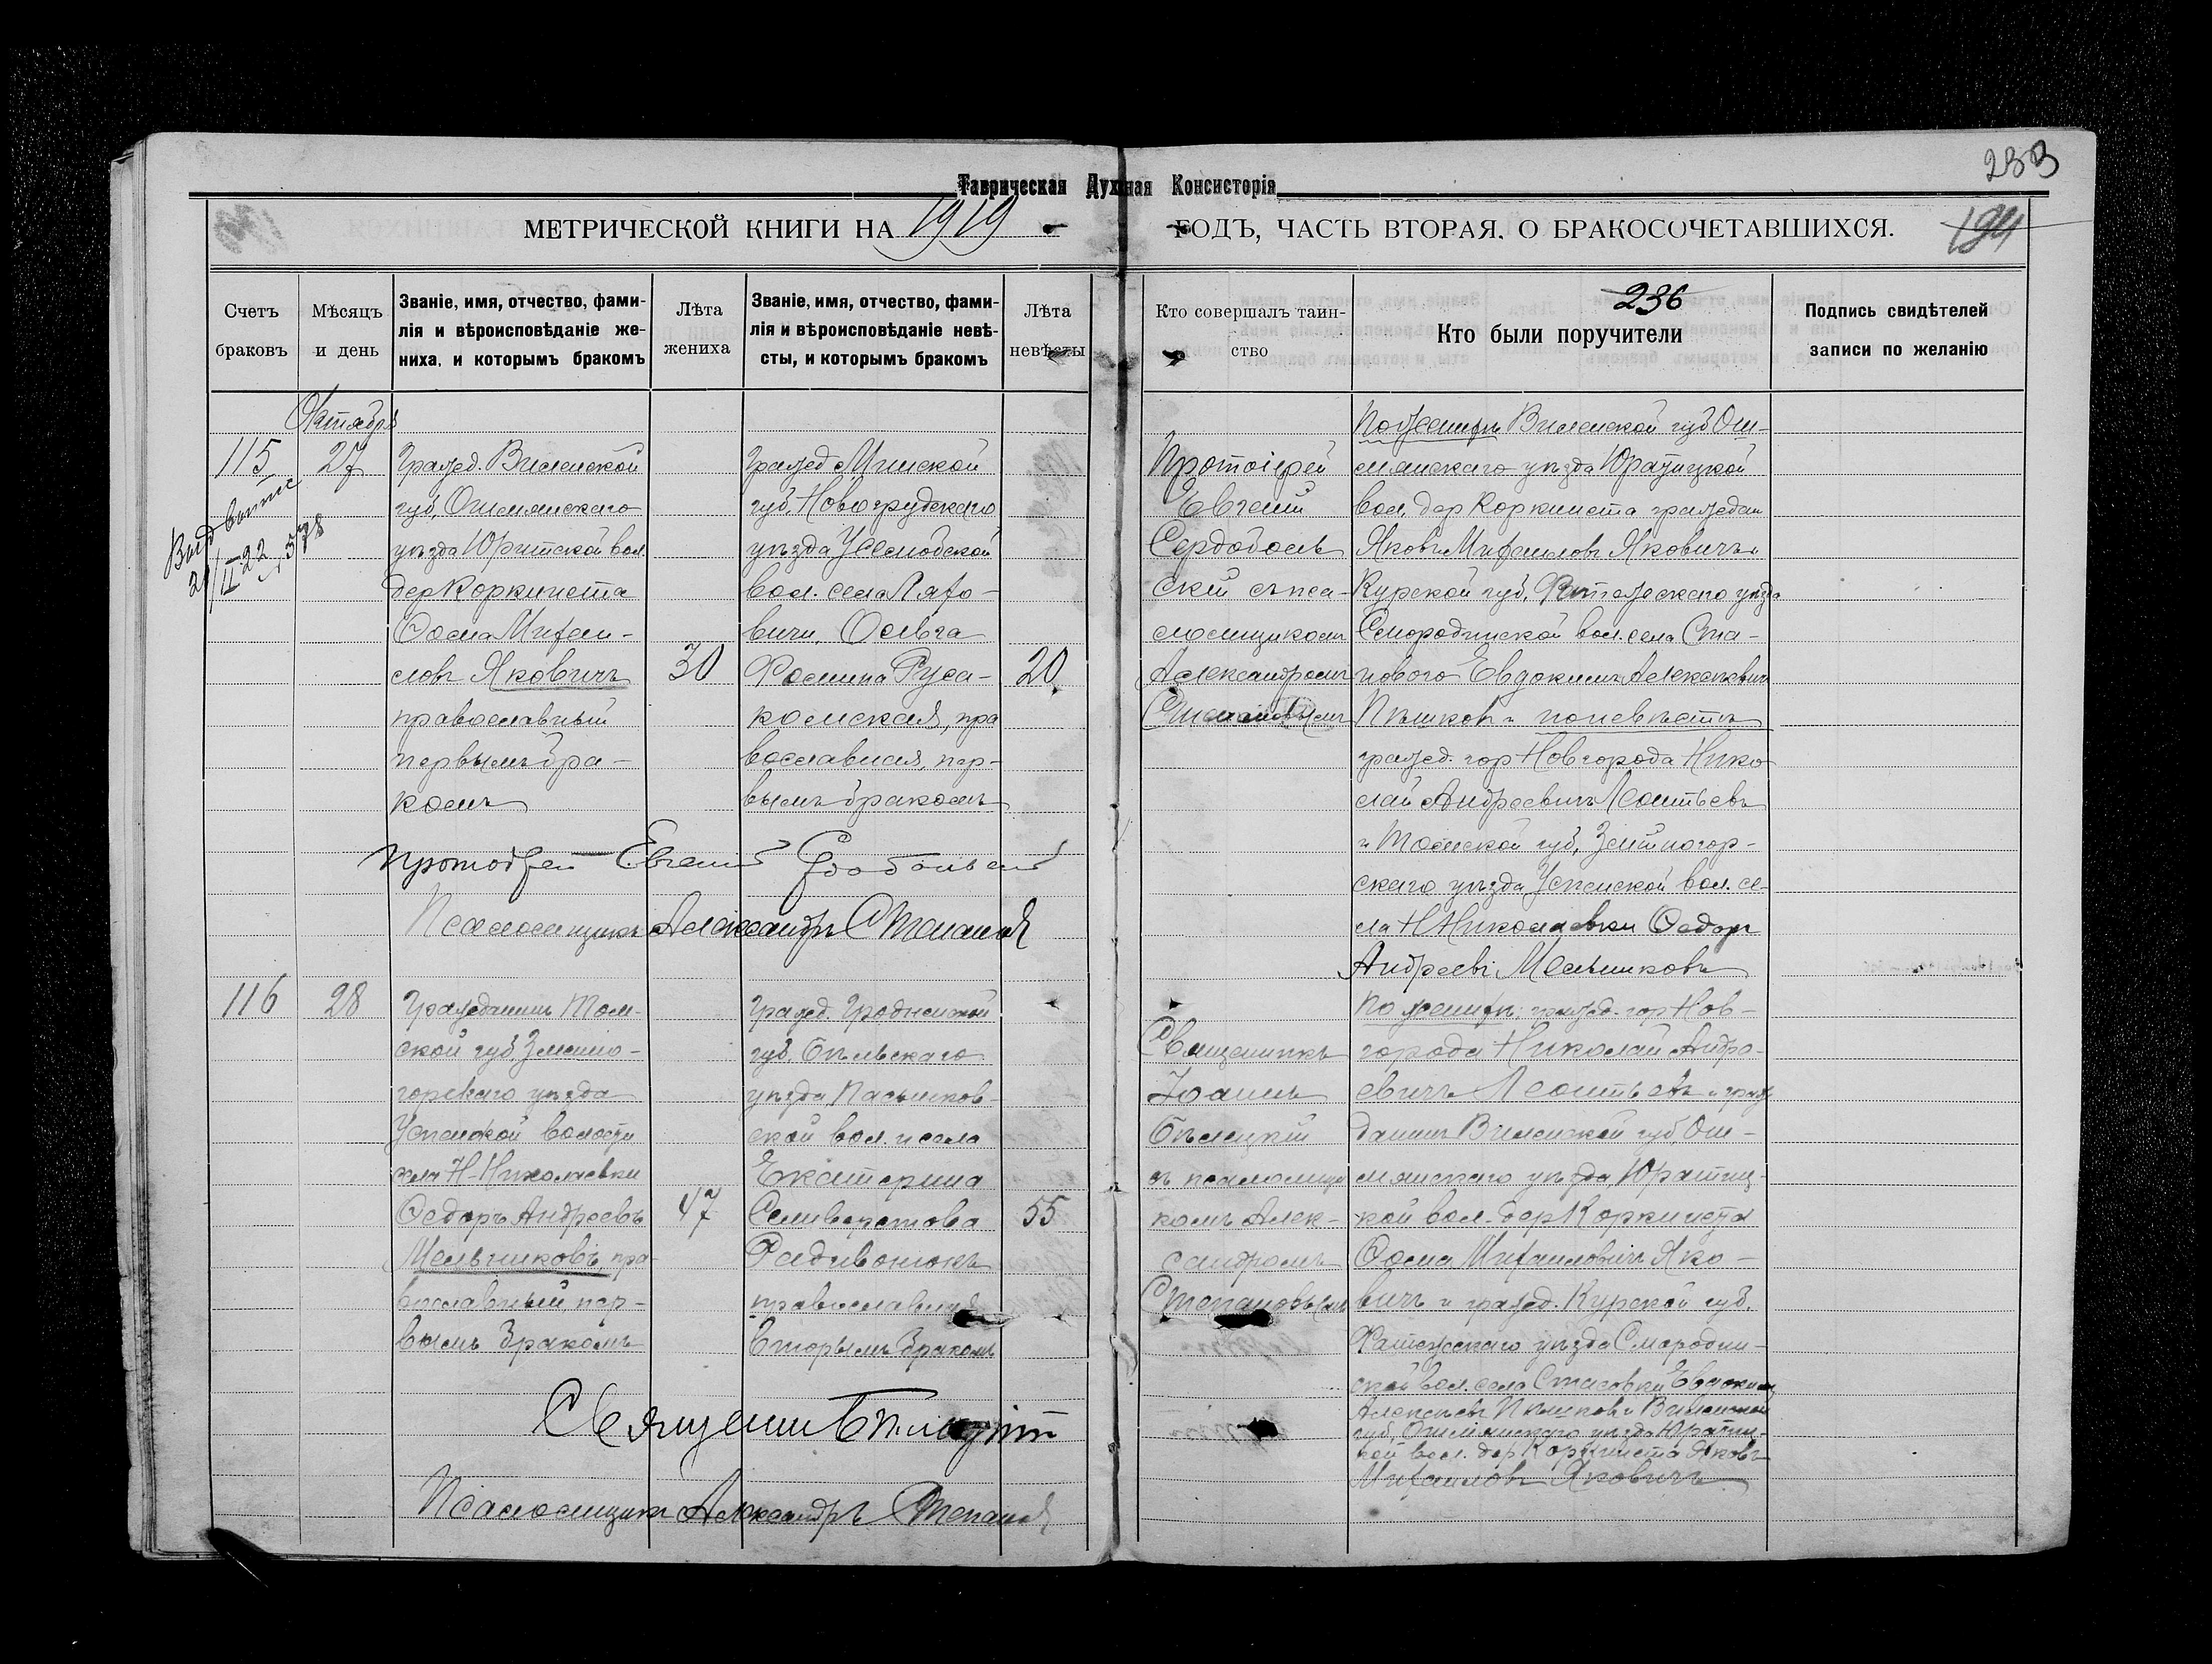 233
Таврическая Духовная Консисторія
МЕТРИЧЕСКОЙ КНИГИ НА 1919 ГОДЪ, ЧАСТЬ ВТОРАЯ, О БРАКОСОЧЕТАВШИХСЯ.
194
Счетъ браковъ
Мѣсяцъ и день
Званіе, имя, отчество, фами-
лія и вѣроисповѣданіе же-
ниха, и которымъ бракомъ
Лѣта жениха
Званіе, имя, отчество, фами-
лія и вѣроисповѣданіе невѣ-
сты, и которымъ бракомъ
Лѣта невѣсты
Кто совершалъ таин-
ство
236
Кто были поручители
Подпись свидѣтелей
записи по желанію
Октября
115
27
21/II-22 №578
Гражд. Виленской
губ, Ошмянскаго
уѣзда Юратской вол.
дер Коркинета
Ѳома Михаи-
ловъ Яковичъ
православный
первымъ бра-
комъ
30
Гражд Минской
губ, Новогрудскаго
уѣзда
вол. села Ляхо-
вичи, Ольга
Фомина Руса-
комская, пра
вославная, пер-
вымъ бракомъ
20
Протоіерей
Евгеній
Сердоболь
скій съ пса-
ломщикомъ
Александромъ
Степановымъ
По женихѣ Виленской губ Ош-
мянскаго уѣзда Юратицкой
вол, дер Коркинета граждан
Яковъ Михаиловъ Яковичъ и
Курской губ, Фатежскаго уѣзда
Смородинской вол. села Ста-
нового Евдокимъ Алексѣевичъ
Пѣшковъ и по невѣстѣ
гражд. гор Новгорода Нико
лай Андреевичъ Леонтьевъ
и Томской губ, Змѣиногор-
скаго уѣзда Успенской вол. се-
ла Н Николаевки Ѳедоръ
Андреевъ Мельниковъ
Протоіерей Евгеній Сердобольскій
Псаломщикъ Александръ Степановъ
116
28
Гражданинъ Том-
ской губ Змеино-
горскаго уѣзда
Успенской волости
села Н-Николаевки
Ѳедоръ Андреевъ
Мельниковъ, пра-
вославный пер-
вымъ бракомъ
47
Гражд. Гродненской
губ. Бѣльскаго
уѣзда Пасынков-
ской вол. и села
Екатерина
Селиверстова
Радивонюкъ
православная
вторымъ бракомъ
55
Священникъ
Іоаннъ
Бѣлецкій
съ псаломщи
комъ Алек-
сандромъ
Степановымъ
По женихѣ: гражд. гор Нов-
города Николай Андре-
евичъ Леонтьевъ и граж
данинъ Виленской губ Ош-
мянскаго уѣзда Юратиц-
кой вол. дер Коркинета
Ѳома Михаиловичъ Яко-
вичъ и гражд. Курской губ.
Фатежскаго уѣзда Смородин-
ской вол. села Евдокимъ
Алексѣевъ Пѣшковъ и Виленской
губ, Ошмянскаго уѣзда Юратиц-
кой вол. дер Коркинета Яковъ
Михаиловъ Яковичъ
Священникъ Бѣлецкій
Псаломщикъ Александръ Степановъ